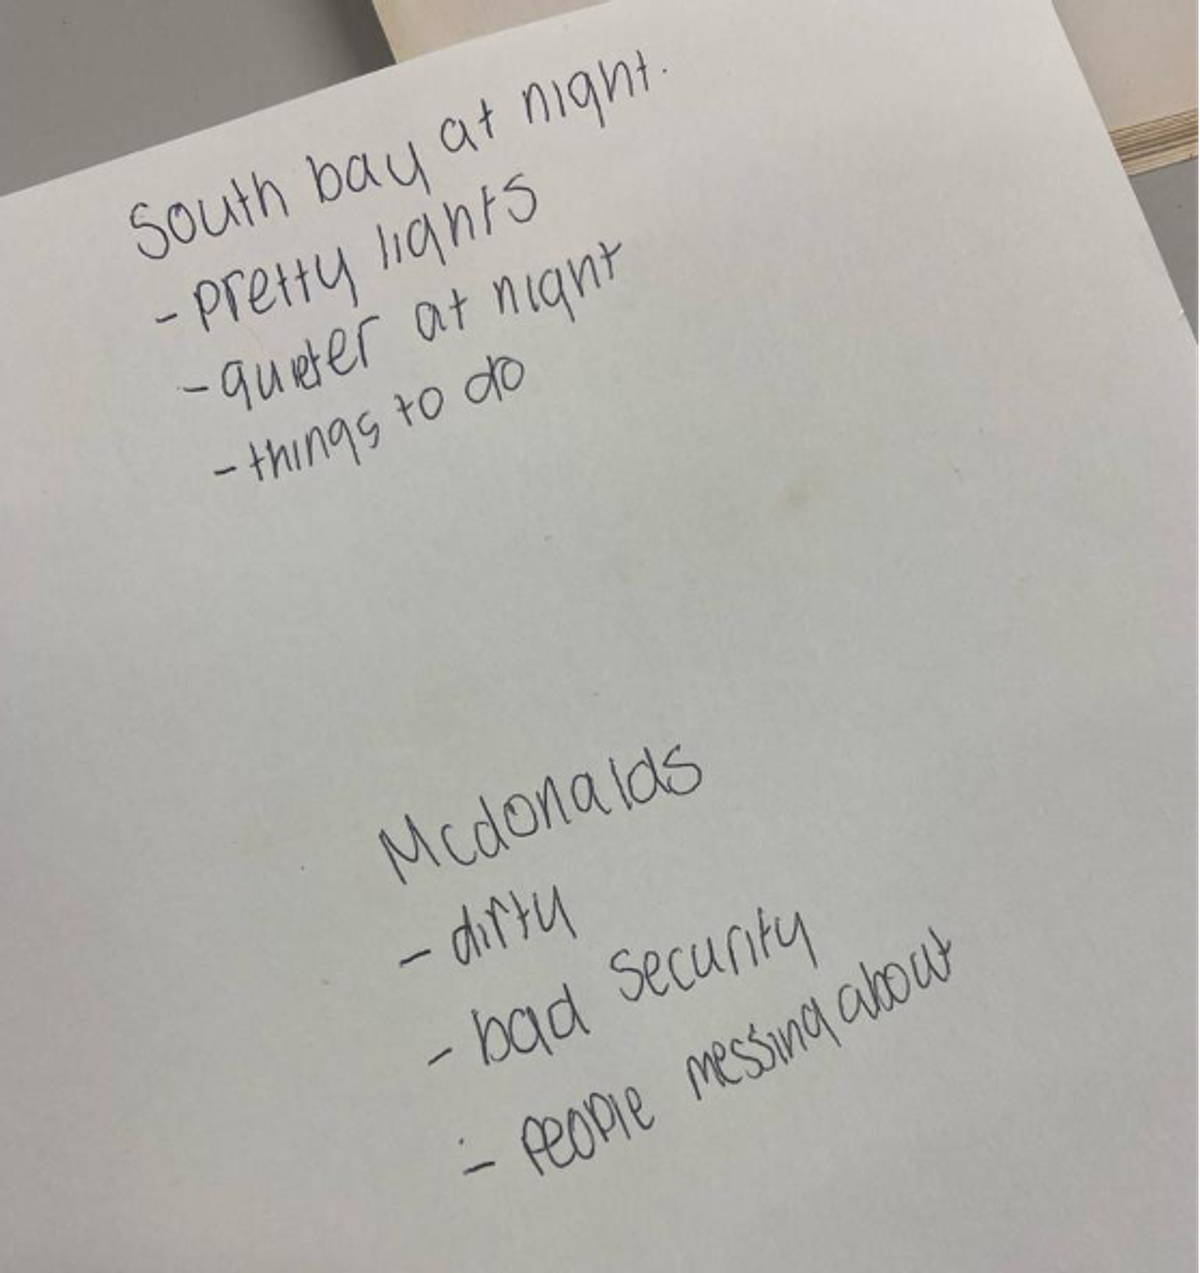 South bay at night.
- pretty lights
- quieter at night
- things to do
Mcdonalds
- dirty
- bad security
- people messing about